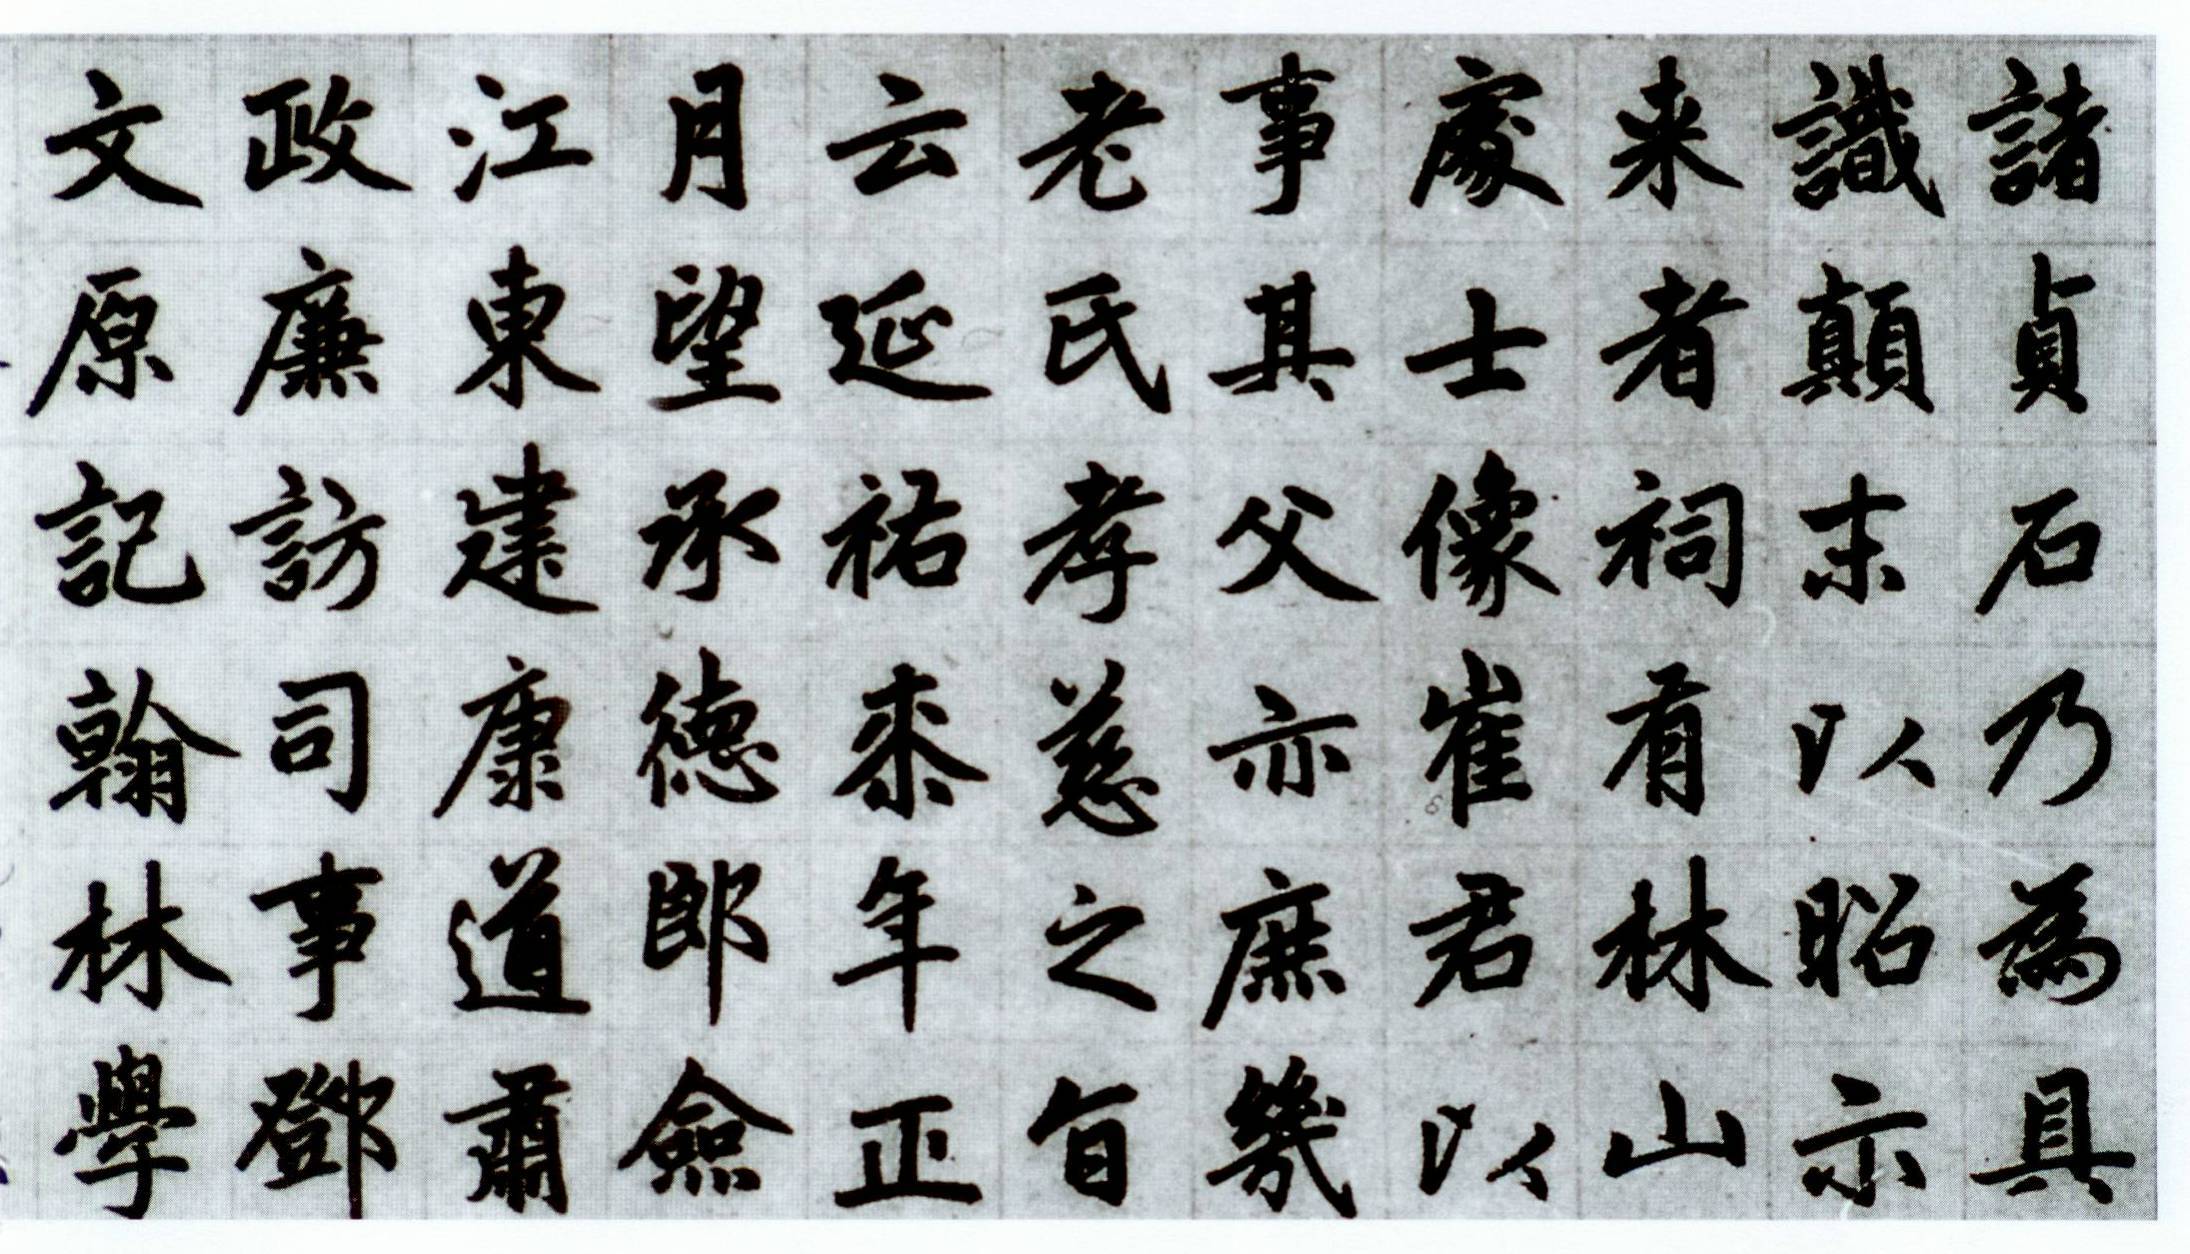 諸貞石乃為具
識顛末以昭示
来者祠有林山
處士像崔君以
事其父亦庶幾
老氏孝慈之旨
云延祐桼年正
月望承德郎僉
江東建康道肅
政廉訪司事鄧
文原記翰林學